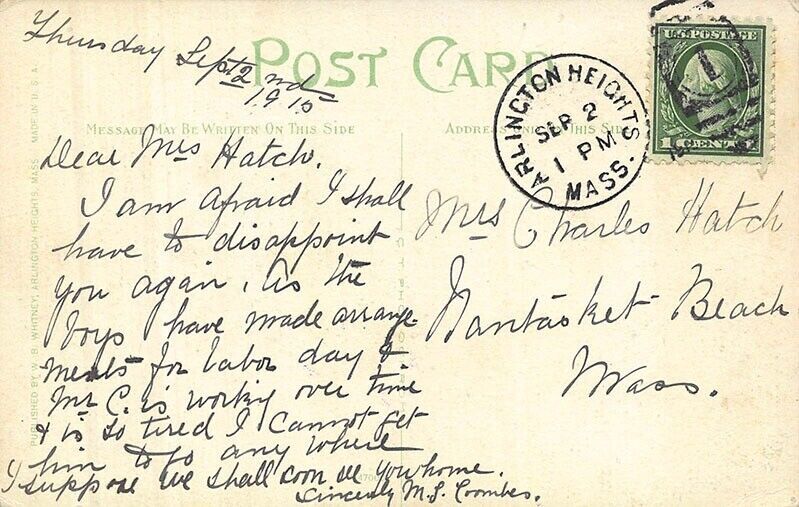 Thursday Sept 2nd
1915
POST CARD
MESSAGE MAY BE WRITTEN ON THIS SIDE
ADDRESS ONLY ON THIS SIDE
ARLINGTON HEIGHTS
SEP 2
1 PM
MASS.
U.S. POSTAGE
1 CENT 1
PUBLISHED BY W. B. WHITNEY, ARLINGTON HEIGHTS, MASS. MADE IN U. S. A.
Dear Mrs Hatch.
I am afraid I shall
have to disappoint
you again, as the
boys have made arrange
ments for labor day &
Mr C. is working over time
& is so tired I cannot get
him to go any where
I suppose we shall soon see you home.
Sincerely M. S. Coombes.
Mrs Charles Hatch
Nantasket Beach
Mass.